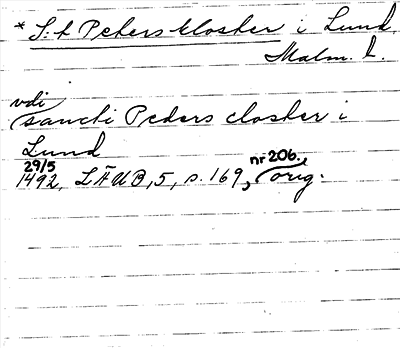 * S:t Peters kloster i Lund,
Malm. l.
vdi
sancti Peders closter i
Lund
29/5 nr 206.
1492, LÄUB, 5, s. 169, orig.